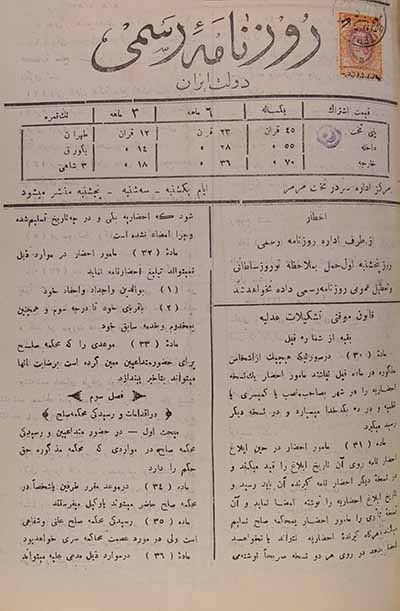 روزنامهٔ رسمی
دولت ایران
قیمت اشتراک یکساله ۶ ماهه ۳ ماهه تک نمره
پای تخت ۴۵ قران ۲۳ قران ۱۲ قران طهران
داخله ۵۵ ،، ۲۸ ،، ۱۴ ،، یاورقی
خارجه ۷۰ ،، ۳۶ ،، ۱۸ ،، ۳ شاهی
مرکز اداره سر در تخت مرمر ایام یکشنبه - سه‌شنبه - پنجشنبه منتشر میشود
اخطار
از طرف اداره روزنامه رسمی
روز پنجشنبه اول حمل بملاحظهٔ نوروز سلطانی
و تعطیل عمومی روزنامه رسمی داده نخواهد شد
قانون موقتی تشکیلات عدلیه
بقیه از شماره قبل
مادهٔ (۳۰) درصورتیکه هیچیک از اشخاص
مذکوره در ماده قبل نباشند مامور احضار یک نسخه
احضاریه را در شهر بصاحبمنصب یا کمیسری یا
نظمیه و در ده بکدخدا میسپارد و در نسخه دیگر
رسید میگیرد
مادهٔ (۳۱) مامور احضار در حین ابلاغ
احضار نامه روی آن تاریخ ابلاغ را قید میکند و
در نسخهٔ دیگر احضار نامه گیرنده آن باید رسید و
تاریخ ابلاغ احضاریه را نوشته امضا نماید و آن
نسخه ثانی را مامور احضار بمحکمه صلح تسلیم
میکند هرگاه گیرندهٔ احضاریه نتواند یا نخواهد رسید
بدهد در روی هر دو نسخه صریحاً نوشته می
شود که احضاریه بکی و در چه تاریخ تسلیم شده
و چرا امضاء نشده است
مادهٔ (۳۲) مامور احضار در موارد ذیل
نمیتواند تبلیغ احضارنامه نماید
(۱) بوالدین و اجداد و احفاد خود
(۲) باقربای خود تا درجه سوم و همچنین
بمخدوم و خدمه سابق خود
مادهٔ (۳۳) موعدی را که محکمه صلح
برای حضور متداعیین معین کرده است برضایت آنها
میتواند بتاخیر بیندازد
فصل سوم
در اقدامات و رسیدگی محکمه صلح
مبحث اول — در حضور متداعیین و رسیدگی
محکمه صلح در مواردی که محکمه مذکوره حق
حکم را دارد
مادهٔ (۳۴) در موعد مقرر طرفین یا شخصاً در
محکمه صلح حاضر میشوند یا وکیل میفرستند
مادهٔ (۳۵) رسیدگی محکمه صلح علنی و شفاهی
است ولی در مورد عصمت محاکمه سری خواهد بود
مادهٔ (۳۶) در موارد ذیل مدعی علیه میتواند